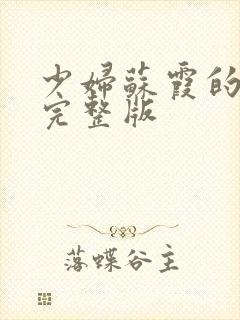 少婦蘇霞的
完整版
落蝶谷主